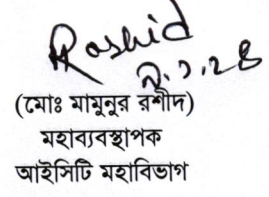 Rashid
৯.১.২৪
(মোঃ মামুনুর রশীদ)
মহাব্যবস্থাপক
আইসিটি মহাবিভাগ